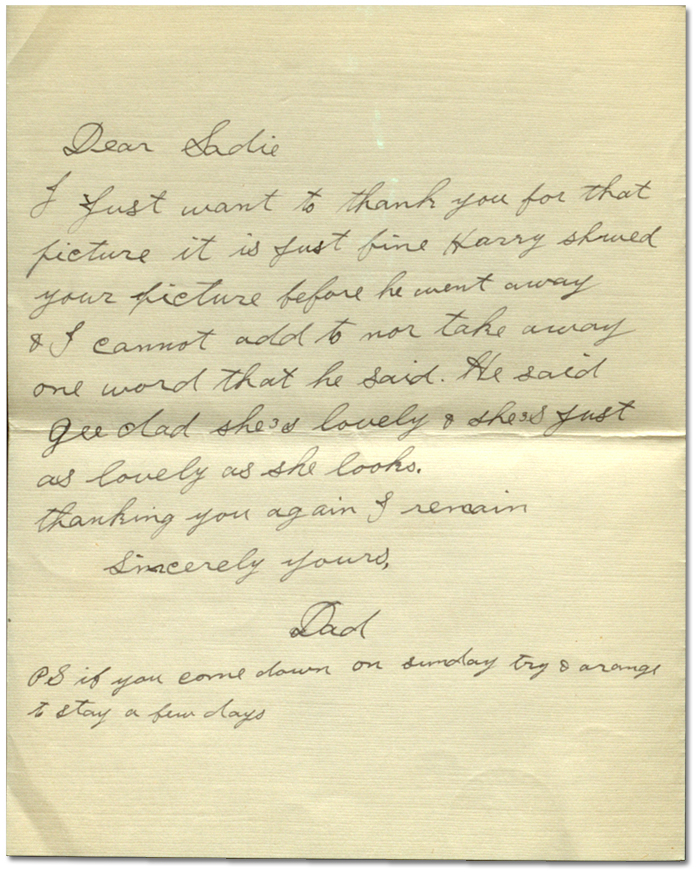 Dear Sadie
I Just want to thank you for that
picture it is Just fine Harry showed
your picture before he went away
& I cannot add to nor take away
one word that he said. He said
gee dad she's lovely & she's Just
as lovely as she looks.
thanking you again I remain
Sincerely yours,
Dad
PS if you come down on sunday try & arange
to stay a few days